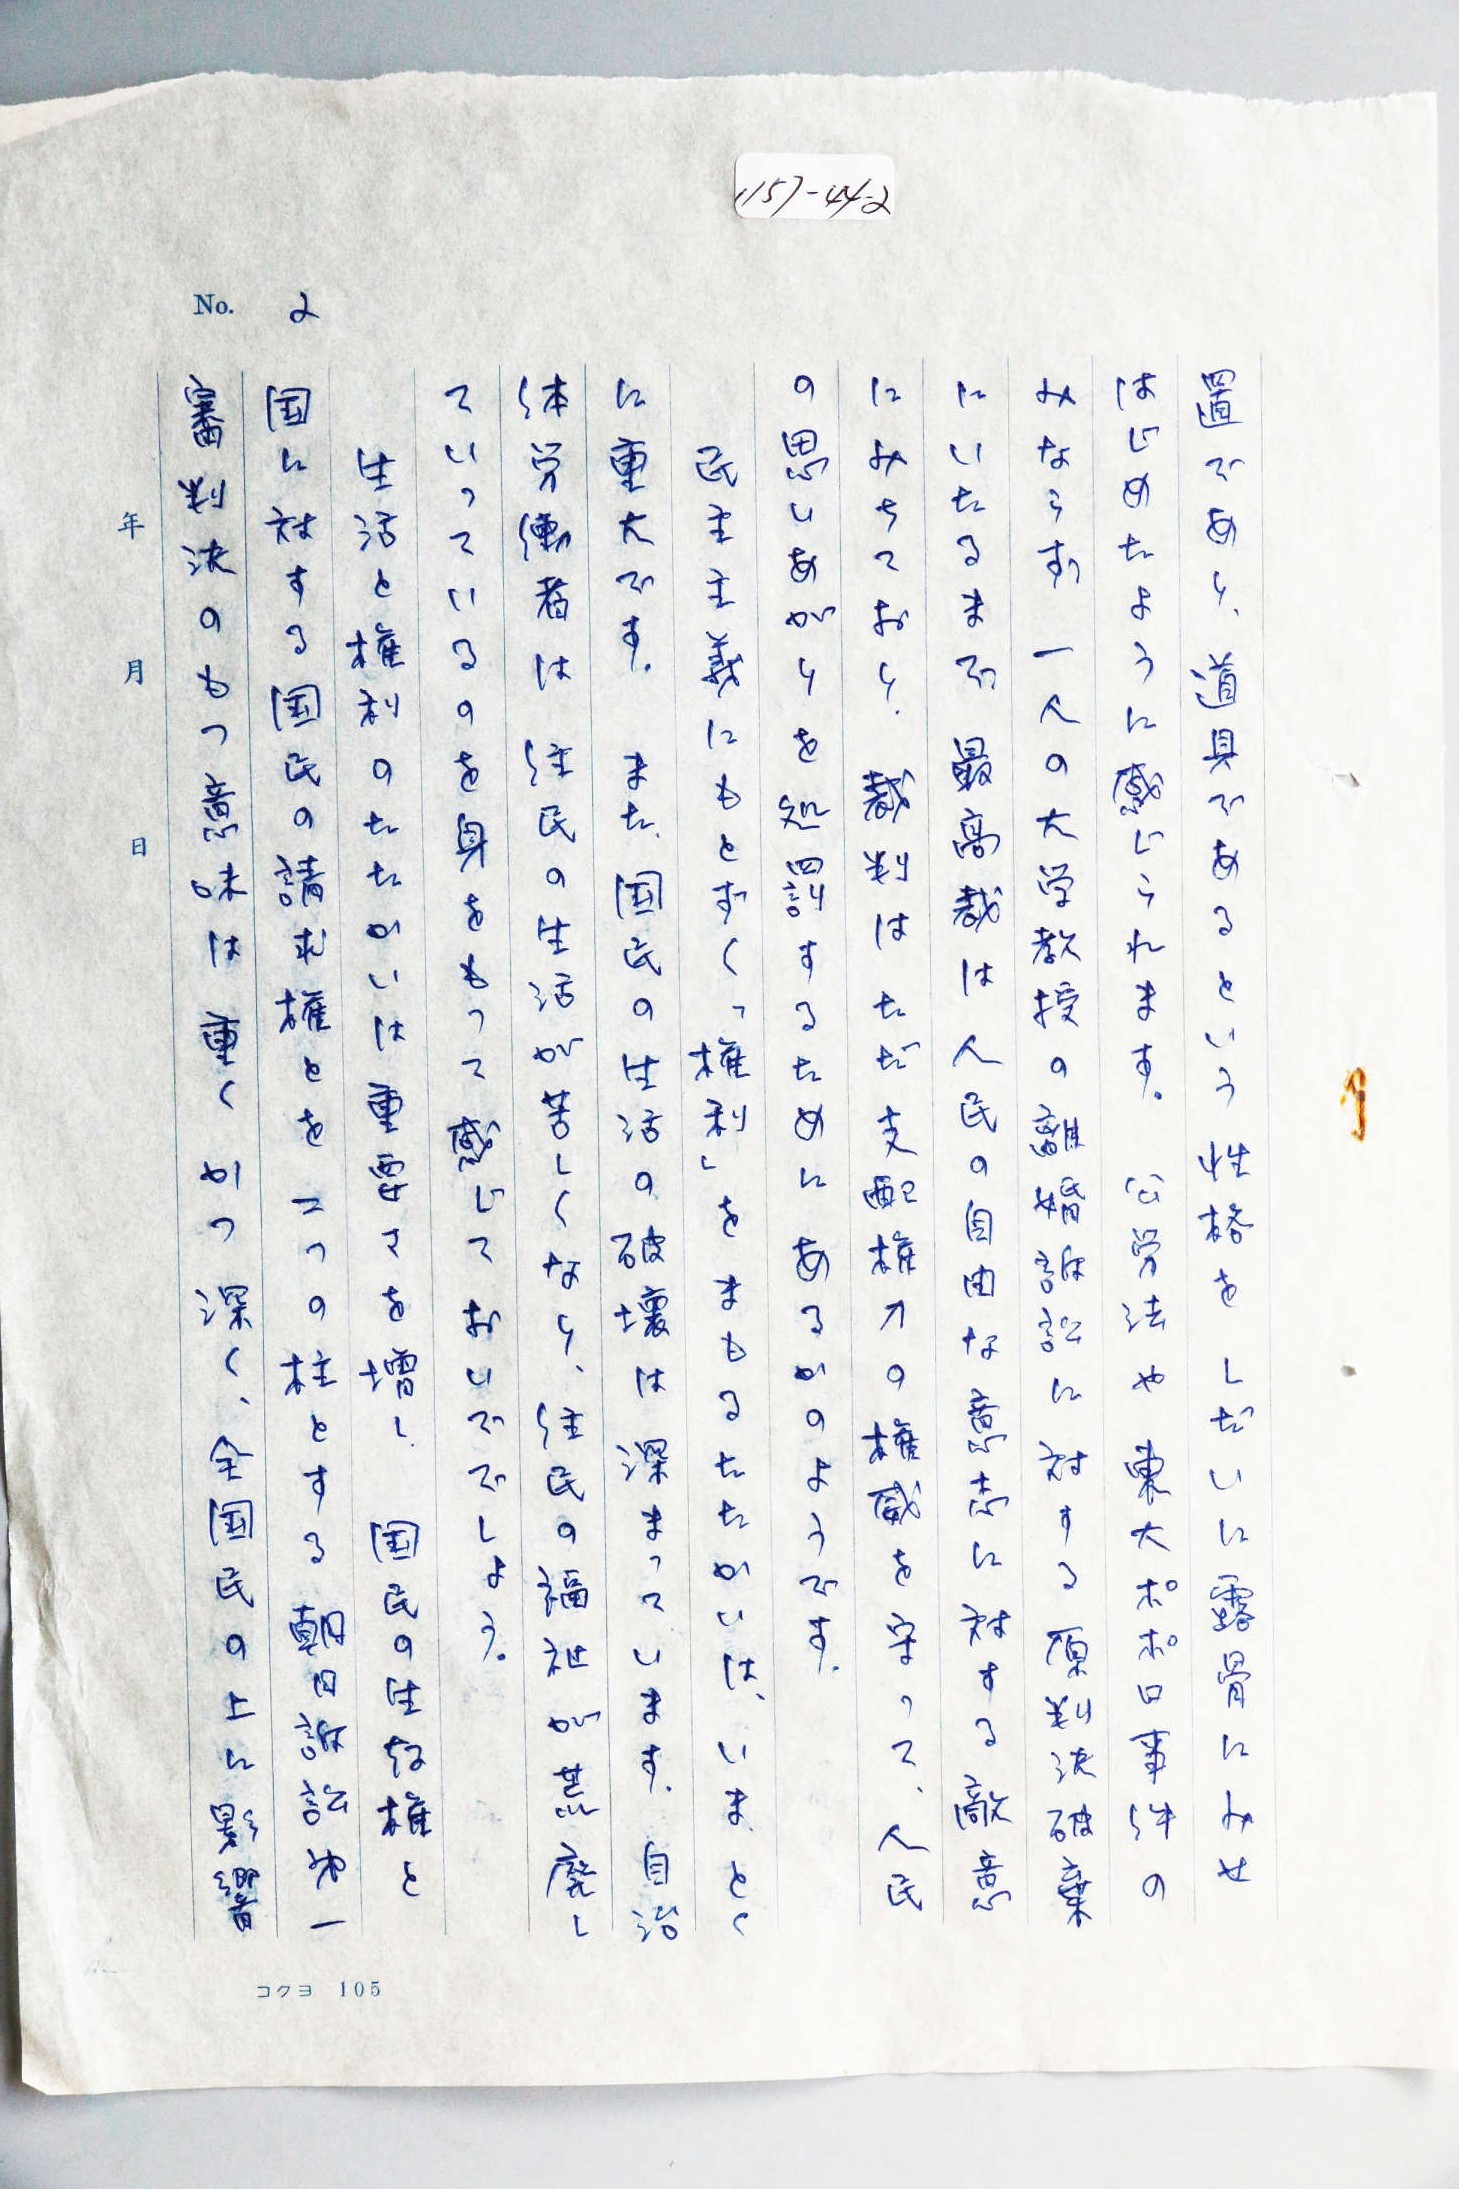 1157-44-2
No. 2
置であり、道具であるという性格をしだいに露骨にみせ
はじめたように感じられます。公労法や東大ポポロ事件の
みならず、一人の大学教授の離婚訴訟に対する原判決破棄
にいたるまで、最高裁は人民の自由な意志に対する敵意
にみちており、裁判はただ支配権力の権威を守って、人民
の思いあがりを処罰するためにあるかのようです。
民主主義にもとずく「権利」をまもるたたかいは、いま、とく
に重大です。また、国民の生活の破壊は深まっています。自治
体労働者は住民の生活が苦しくなり、住民の福祉が荒廃し
ていっているのを身をもって感じておいででしょう。
生活と権利のたたかいは重要さを増し、国民の生存権と
国に対する国民の請求権とを二つの柱とする朝日訴訟第一
審判決のもつ意味は重くかつ深く、全国民の上に影響
年 月 日
コクヨ 105